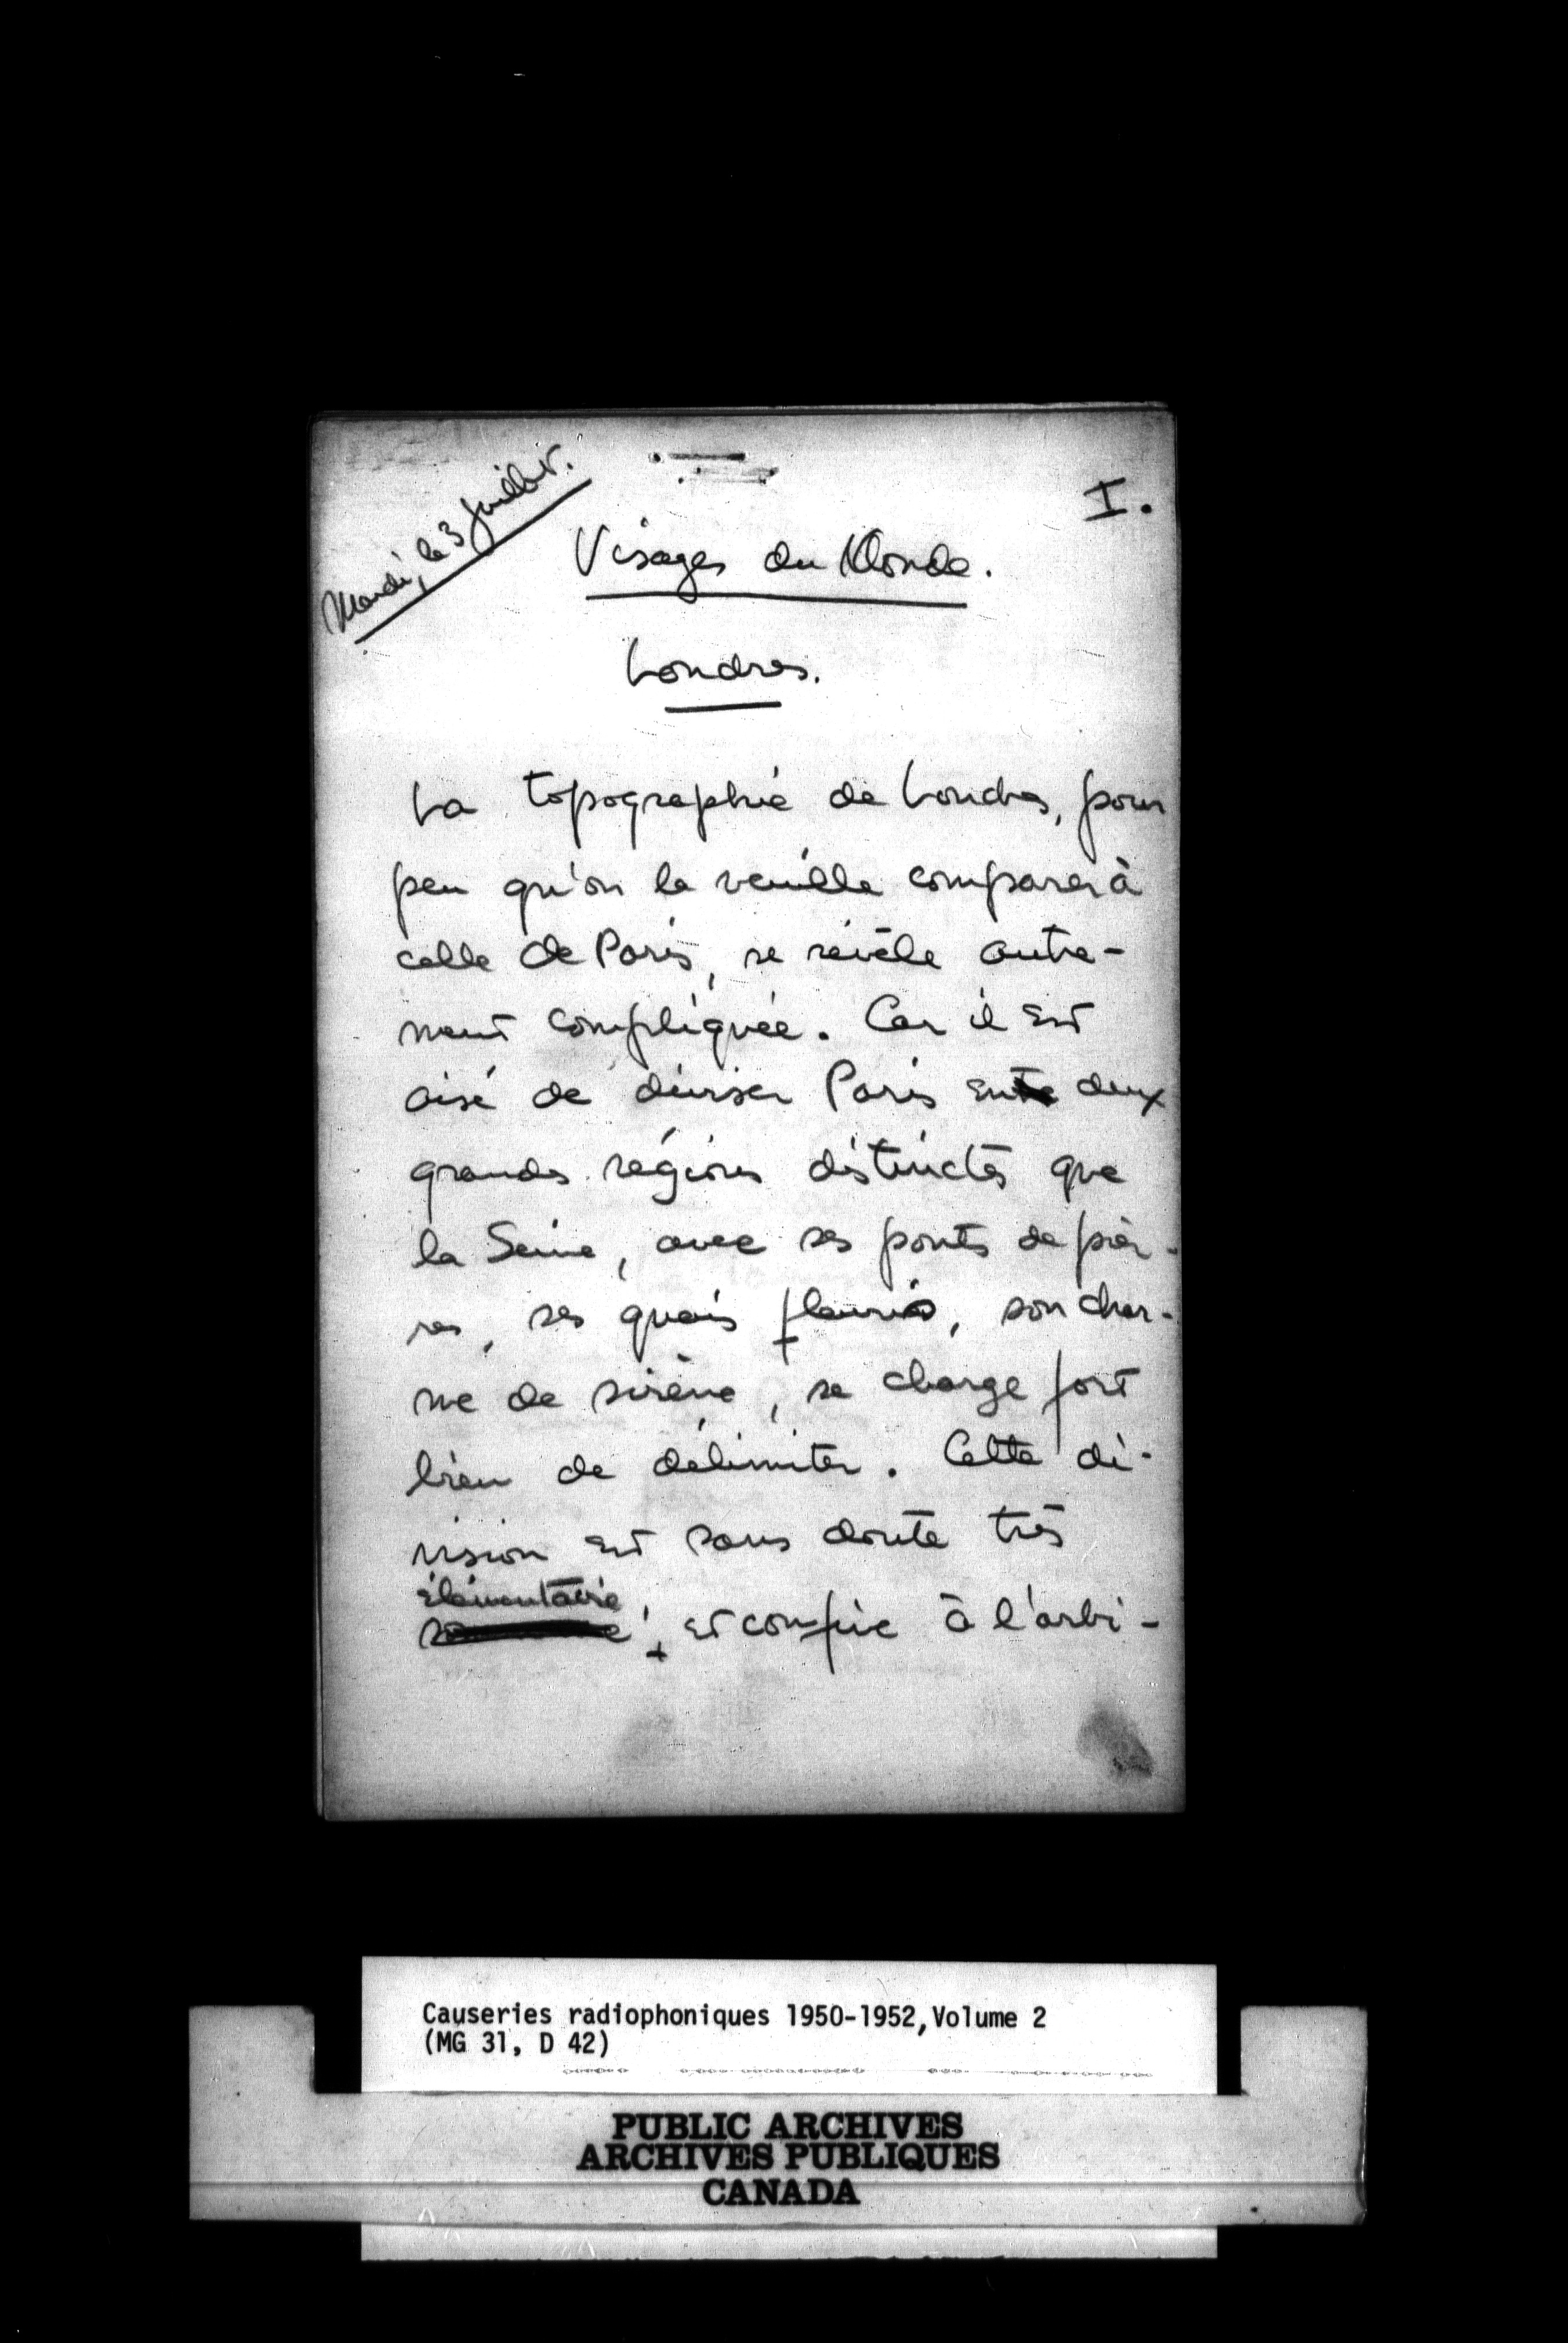 Mardi, le 3 juillet.
I.
Visages du Monde.
Londres.
La topographie de Londres, pour
peu qu'on la veuille comparer à
celle de Paris, se révèle autre-
ment compliquée. Car il est
aisé de diviser Paris en deux
grandes régions distinctes que
la Seine, avec ses ponts de pier-
res, ses quais fleuris, son char-
me de sirène, se charge fort
bien de délimiter. Cette di-
vision est sans doute très
élémentaire
, et confie à l'arbi-
Causeries radiophoniques 1950-1952, Volume 2
(MG 31, D 42)
PUBLIC ARCHIVES
ARCHIVES PUBLIQUES
CANADA